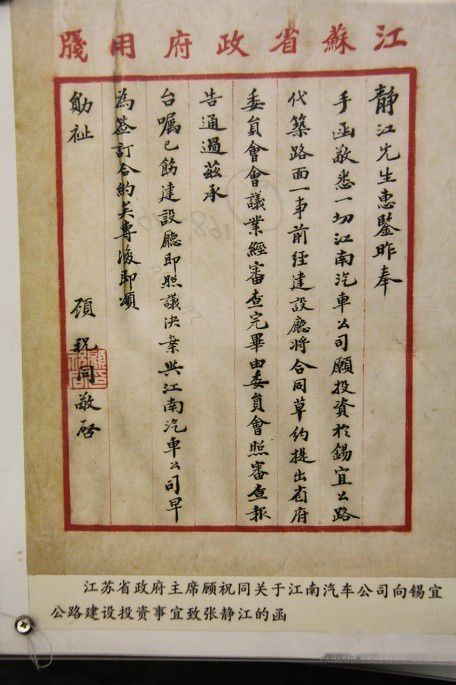 江蘇省政府用牋
靜江先生惠鑒昨奉
手函敬悉一切江南汽車公司願投資於錫宜公路
代築路面一事前經建設廳將合同草約提出省府
委員會會議業經審查完畢由委員會照審查報
告通過茲承
台囑已飭建設廳即照議決案與江南汽車公司早
為簽訂合約矣專復即頌
勛祉
顧祝同敬啓
江苏省政府主席顾祝同关于江南汽车公司向锡宜
公路建设投资事宜致张静江的函